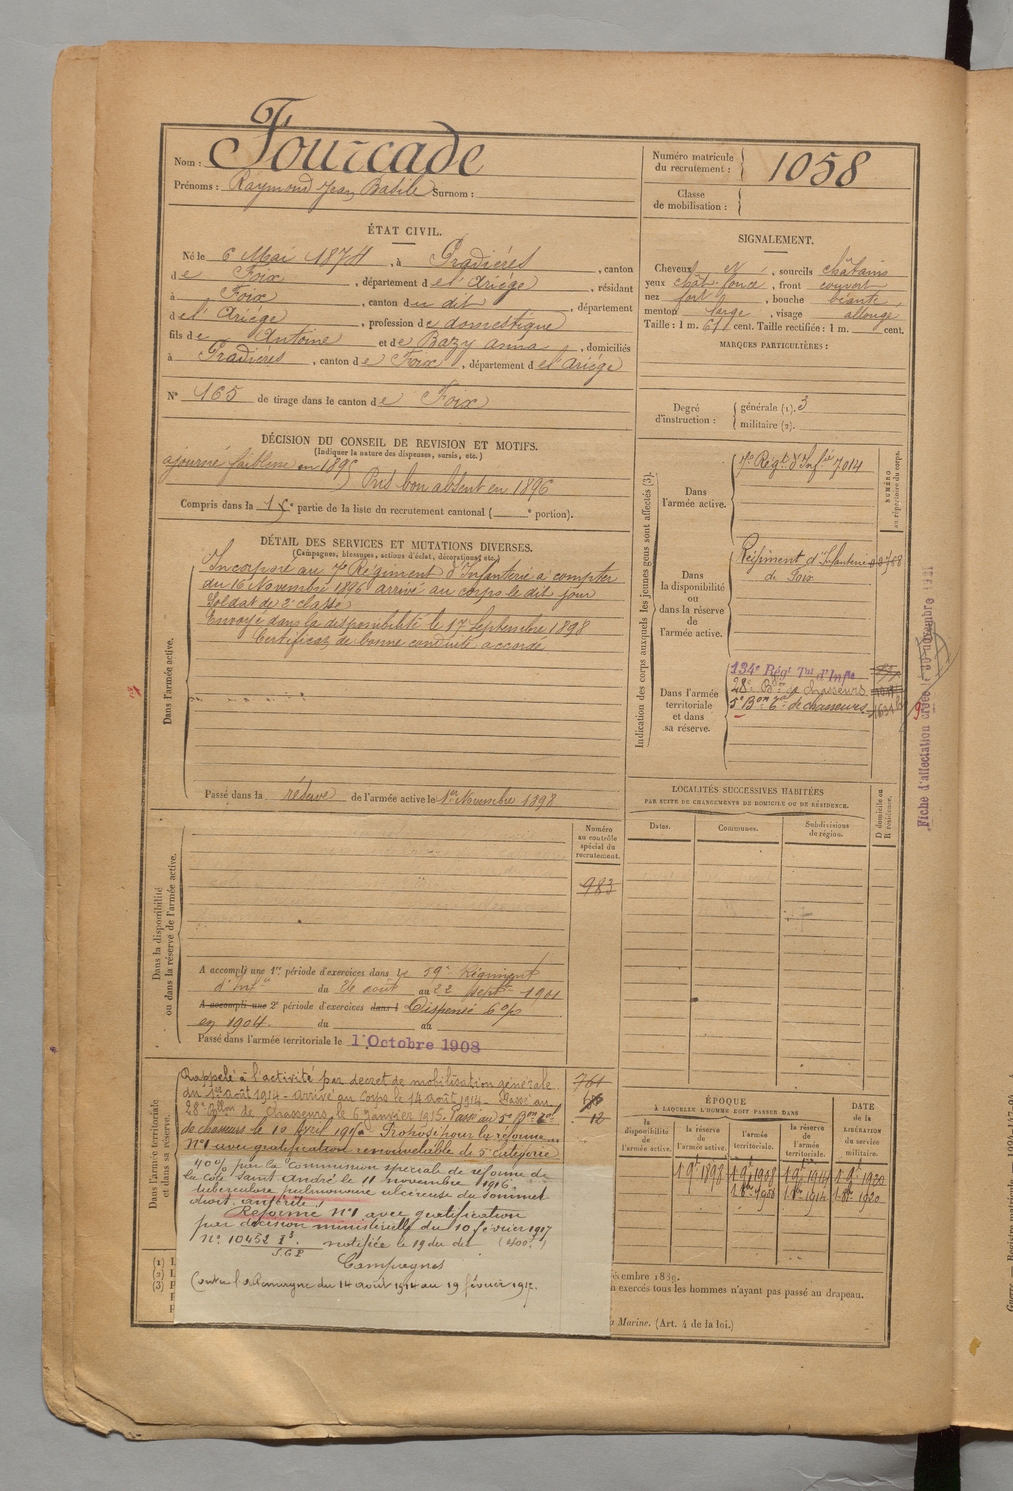 Nom : Fourcade
Prénoms : Raymond Jean Basile Surnom :
Numéro matricule du recrutement : 1058
Classe de mobilisation :
ÉTAT CIVIL.
Né le 6 Mai 1874, à Pradières, canton
de Foix, département de l'Ariège, résidant
à Foix, canton du dit, département
de l'Ariège, profession de domestique
fils de Antoine et de Bazy Anna, domiciliés
à Pradières, canton de Foix, département de l'Ariège
N° 165 de tirage dans le canton de Foix
SIGNALEMENT.
Cheveux N, sourcils châtains
yeux chât. foncé, front couvert
nez fort, bouche béante,
menton large, visage allongé
Taille : 1 m. 61 cent. Taille rectifiée : 1 m. cent.
MARQUES PARTICULIÈRES :
Degré d'instruction : générale (1). 3
militaire (2).
DÉCISION DU CONSEIL DE REVISION ET MOTIFS.
(Indiquer la nature des dispenses, sursis, etc.)
ajourné faiblesse en 1895
Pris bon absent en 1896
Compris dans la 1e partie de la liste du recrutement cantonal ( e portion).
DÉTAIL DES SERVICES ET MUTATIONS DIVERSES.
(Campagnes, blessures, actions d'éclat, décorations, etc.)
Dans l'armée active.
Incorporé au 7e Régiment d'Infanterie à compter
du 16 Novembre 1896 arrivé au corps le dit jour
Soldat de 2e classe
Envoyé dans la disponibilité le 17 Septembre 1898
Certificat de bonne conduite accordé
Passé dans la réserve de l'armée active le 1er Novembre 1898
Indication des corps auxquels les jeunes gens sont affectés (3).
NUMÉRO au répertoire du corps.
Dans l'armée active.
7e Régt d'Infie 7014
Dans la disponibilité ou dans la réserve de l'armée active.
Régiment d'Infanterie
de Foix
Dans l'armée territoriale et dans sa réserve.
134e Régt Tal d'Infie
28e Bon de chasseurs
5e Bon Tal de chasseurs
Fiche d'affectation créée novembre
LOCALITÉS SUCCESSIVES HABITÉES
PAR SUITE DE CHANGEMENTS DE DOMICILE OU DE RÉSIDENCE.
Dates. Communes. Subdivisions de région. D domicile ou R résidence.
Dans la disponibilité ou dans la réserve de l'armée active.
Numéro au contrôle spécial du recrutement.
983
A accompli une 1re période d'exercices dans le 59e Régiment
d'Inf du 26 août au 22 septe 1901
A accompli une 2e période d'exercices dans l Dispensé
en 1904. du au
Passé dans l'armée territoriale le 1 Octobre 1908
Dans l'armée territoriale et dans sa réserve.
Rappelé à l'activité par décret de mobilisation générale
du 1er août 1914 - arrivé au corps le 14 août 1914 - Passé au
28e Bllon de Chasseurs le 6 janvier 1915. Passé au 5e Bon Tal
de chasseurs le 19 Avril 191 - Proposé pour la réforme
N°1 avec gratification renouvelable de 5e catégorie
40% par la Commission spéciale de réforme de
la Côte Saint André le 11 novembre 1916.
tuberculose pulmonaire ulcéreuse du sommet
droit
Réformé N°1 avec gratification
par décision ministérielle du 10 février 1917
N° 10452 notifiée le 19 du dit
Campagnes
Contre l'Allemagne du 14 août 1914 au 19 février 1917.
761
12
ÉPOQUE
À LAQUELLE L'HOMME DOIT PASSER DANS
la disponibilité de l'armée active. la réserve de l'armée active. l'armée territoriale. la réserve de l'armée territoriale.
DATE de la LIBÉRATION du service militaire.
1 9e 1898 1 9e 1908 1 9e 1914 1 9e 1920
1 8e 1908 1 8e 1914 1 8e 1920
(1)
(2)
(3)
n exercés tous les hommes n'ayant pas passé au drapeau.
a Marine. (Art. 4 de la loi.)